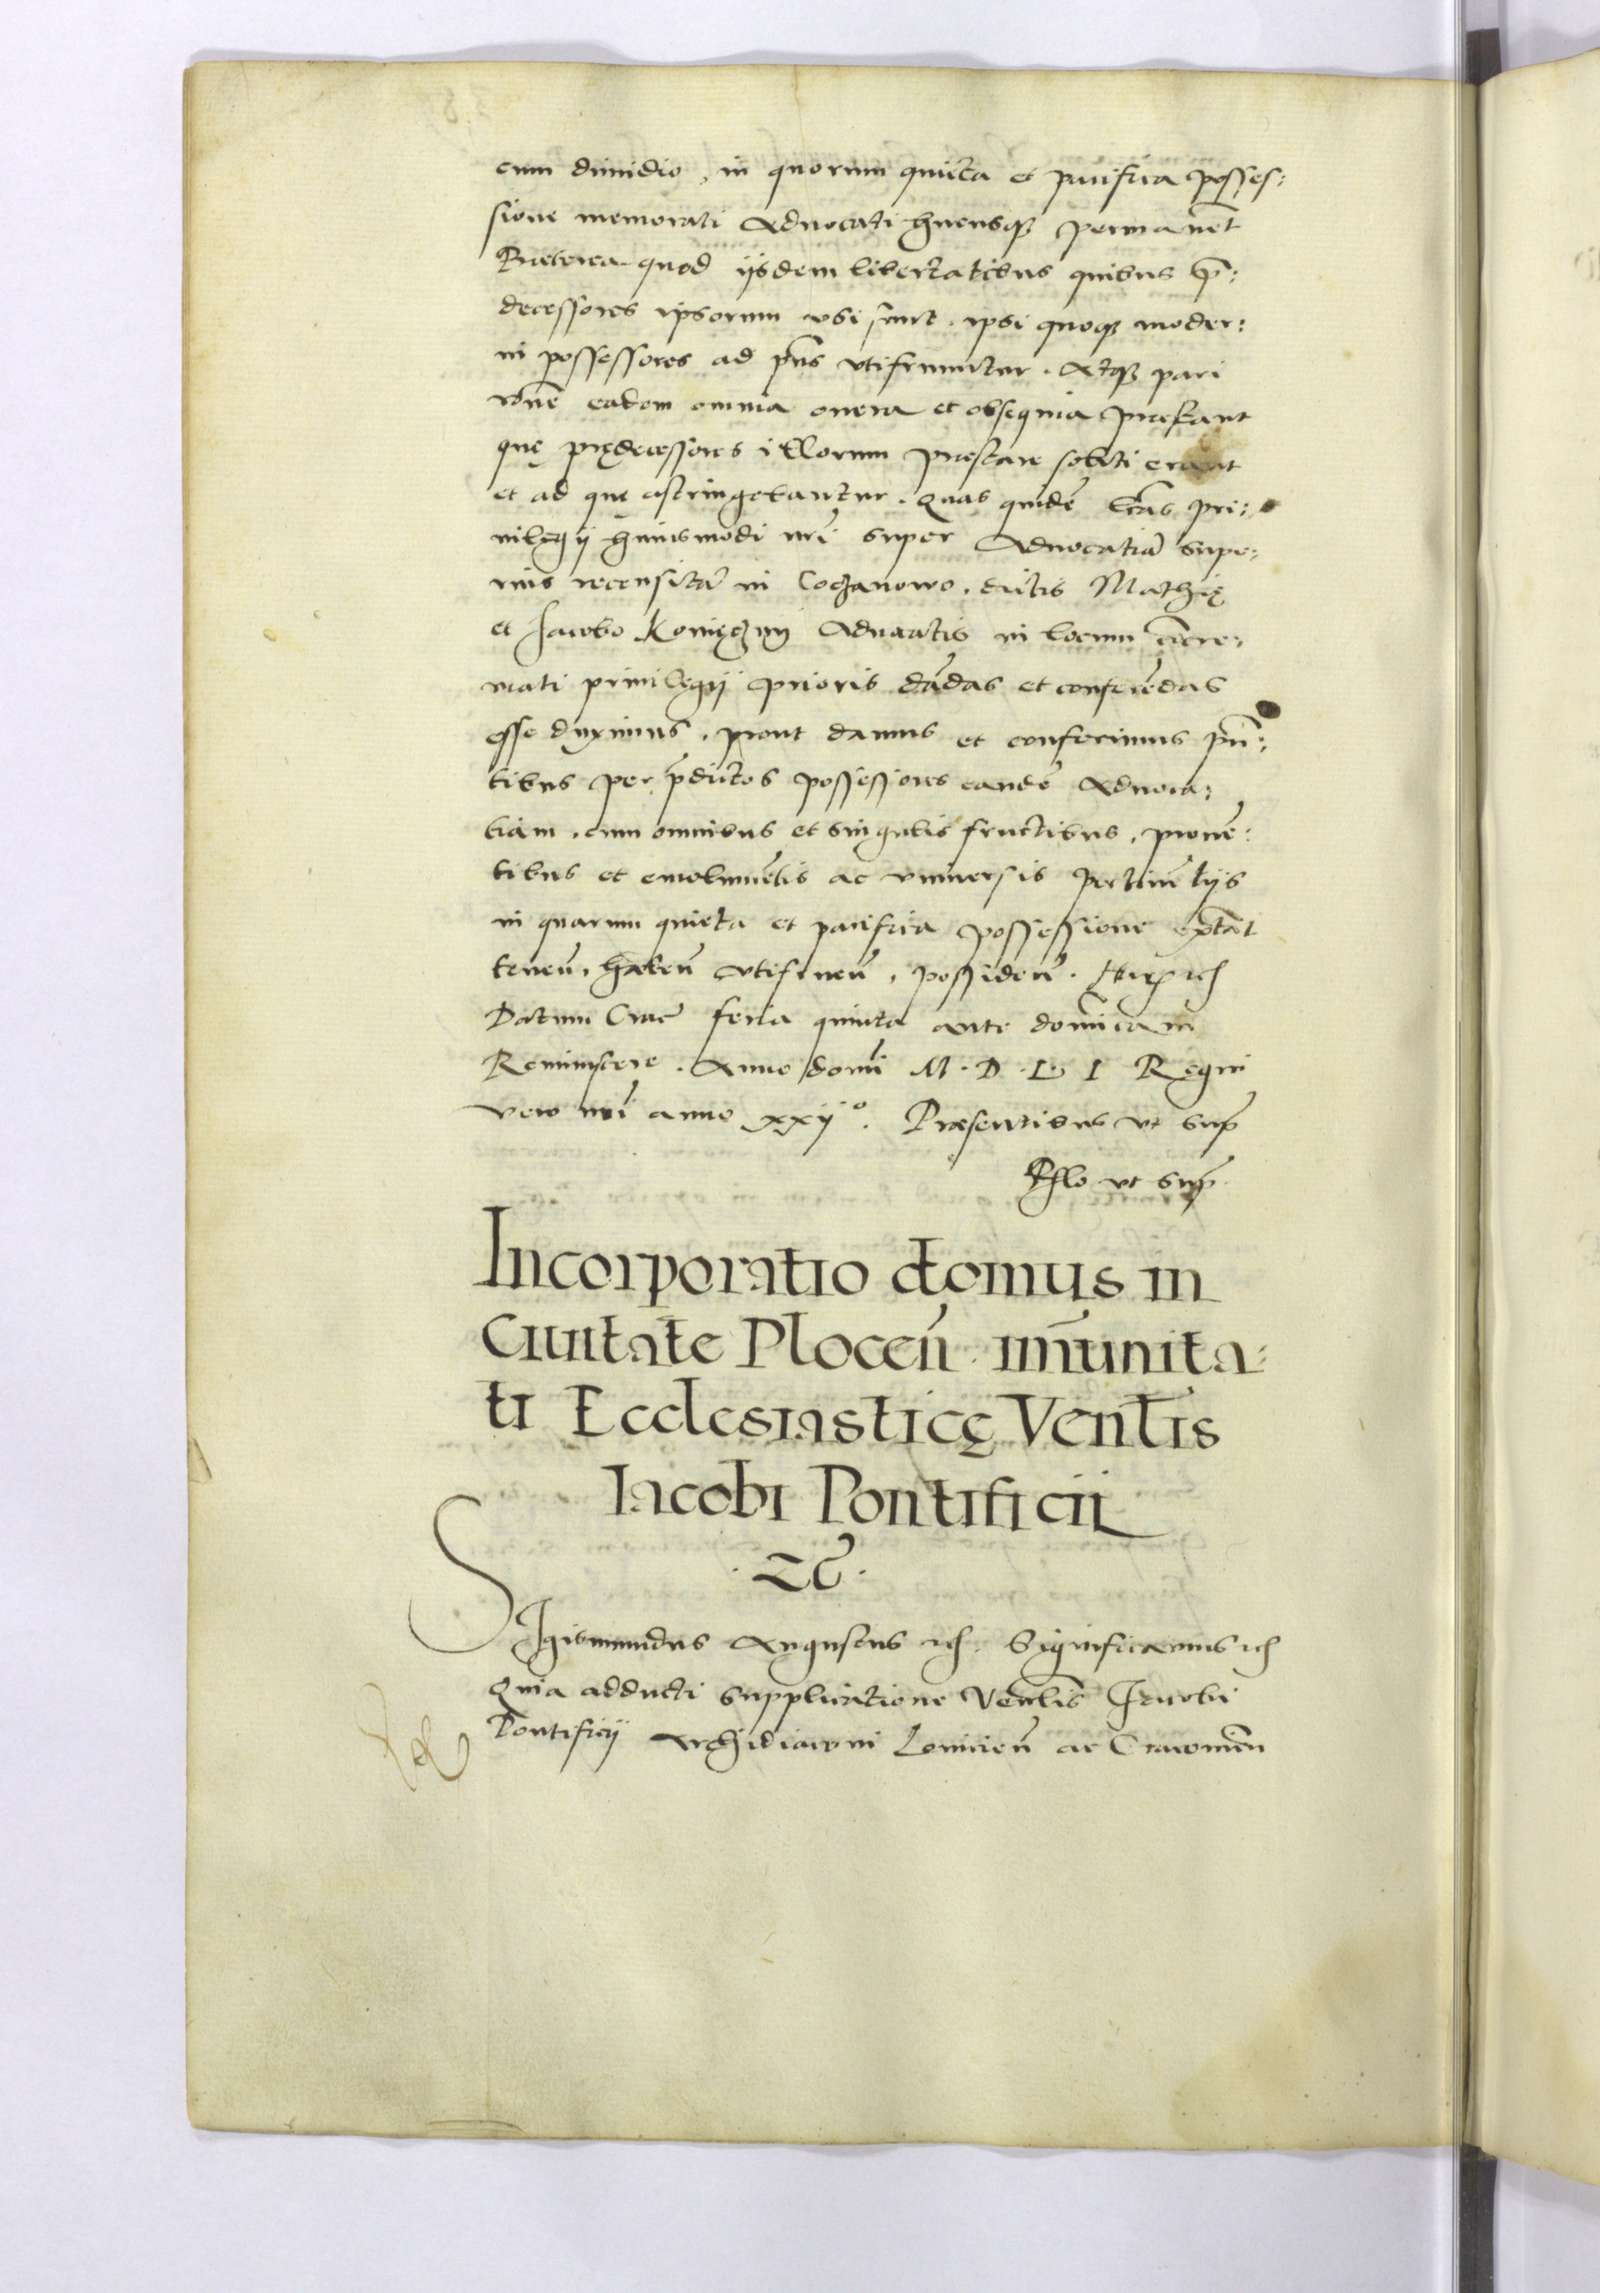 cum dimidio, in quorum quieta et pacifica posses:
sione memorati Advocati hucusq permanēt
Praeterea quod ijsdem libertatibus quibus p̄:
decessores ipsorum vsi sunt. ipsi quoq moder:
ni possessores ad pn̄s vtifruuntur. Atq pari
rōne eadem omnia onera et obsequia praestant
quę pręde­cessores illorum praestare soliti erant
et ad quę astringebantur. Quas quidē lr̄as pri:
uilegij huiusmodi nr̄i super Aduocatiā supe:
rius recensitā in Coczanowo, dictis Mathię
et Jacobo Konięczny Aduocatis in locum cre:
mati priuilegij prioris dādas et conferēdas
esse duximus, prout damus et conferimus pn̄:
tibus per p̄dictos possessores eandē Aduoca:
tiam, cum omnibus et singulis fructibus, prouē:
tibus et emolumētis ac vniuersis pertinētijs
in quarum quieta et pacifica possessione extāt
tenen̄, haben̄ vtifruen̄, possiden̄.
Datum Crac̄ feria quinta ante dominicam
Reminiscere. Anno domī M.D.L.I Regni
vero nr̄i anno xxij°. Praesentibus vt sup̄
Rllo vt sup̄
Incorporatio domus in
Ciuitate Plocen̄. im̄unita:
ti Ecclesiasticę Ven̄lis
Iacobi Pontificij
.Zc̄.
Sigismundus Augustus ic̄. Significamus ic̄
Quia adducti supplicatione Ven̄lis Jacobi
Pontificij Archidiaconi Louicien̄ ac Cracouien̄